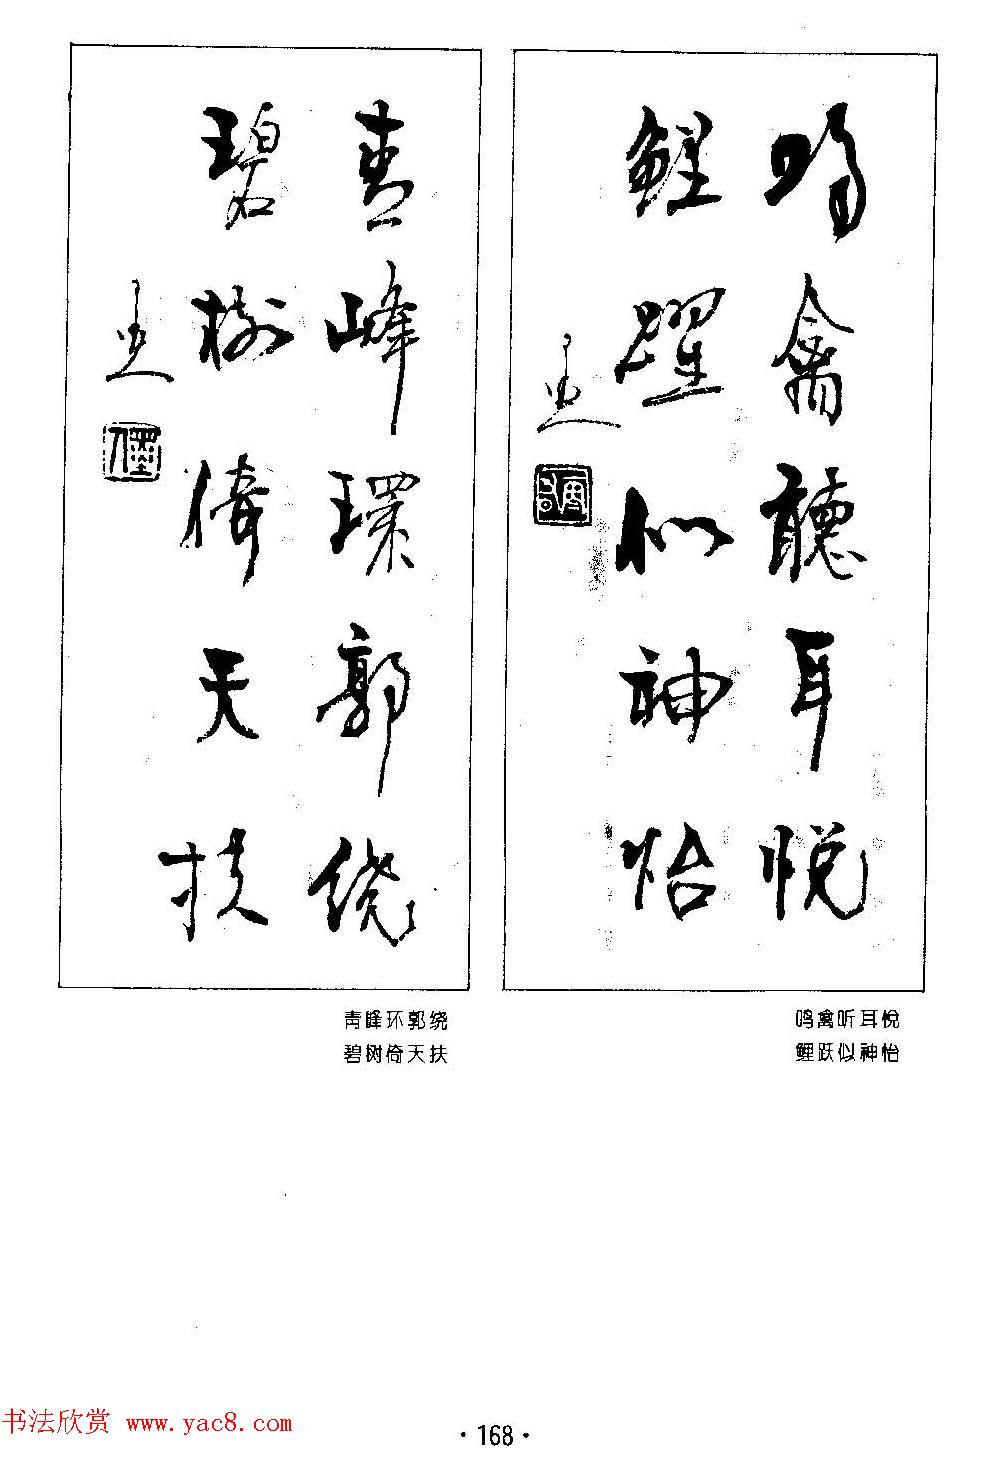 鳴禽聽耳悦
鯉躍似神怡
青峰環郭繞
碧樹倚天扶
鸣禽听耳悦
鲤跃似神怡
青峰环郭绕
碧树倚天扶
书法欣赏 www.yac8.com
·168·